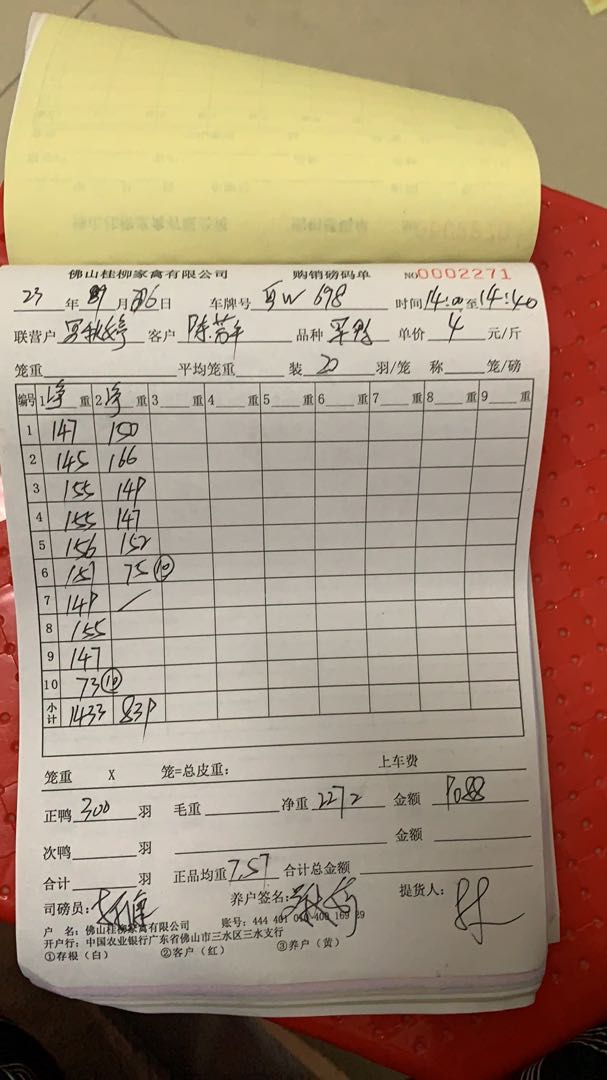 佛山桂柳家禽有限公司 购销磅码单 NO0002271
23 年 月 日 车牌号 W 698 时间 14:00 至 14:40
联营户 客户 陈芳平 品种 单价 4 元/斤
笼重 平均笼重 装 20 羽/笼 称 笼/磅
编号 1 净 重 2 净 重 3 重 4 重 5 重 6 重 7 重 8 重 9 重
1 147 150
2 145 166
3 155 149
4 155 147
5 156 152
6 151 75 ⑩
7 149
8 155
9 147
10 73 ⑩
小计 1433 839
笼重 X 笼=总皮重: 上车费
正鸭 300 羽 毛重 净重 2272 金额 9088
次鸭 羽 金额
合计 羽 正品均重 7.57 合计总金额
司磅员: 养户签名: 提货人:
户 名: 佛山桂柳家禽有限公司 账号: 444 401 010 400 169 29
开户行: 中国农业银行广东省佛山市三水区三水支行
①存根（白） ②客户（红） ③养户（黄）